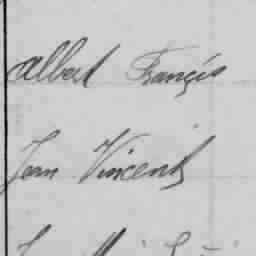 Albert François
Jean Vincent